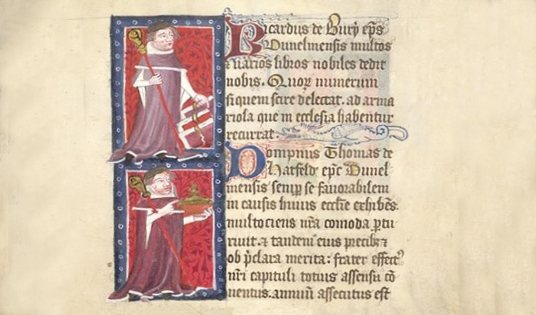 Ricardus de Bury ep̄s
Dunelmensis multos
& varios libros nobiles dedit
nobis. Quoꝝ numerum
si quem scire delectat. ad arma
riola que in ecclesia habentur
recurrat.
Dompnus Thomas de
Hatfeld ep̄c Dunel
mensis semp se fauorabilem
in causis huius eccl̄ie exhibēs.
multociens nr̄a comoda ꝑcu
riuit. & tandem eius precibꝫ &
ob p̄clara merita: frater effectꝰ
nr̄i capituli totius assensu cō
uentus. annuū assecutus est